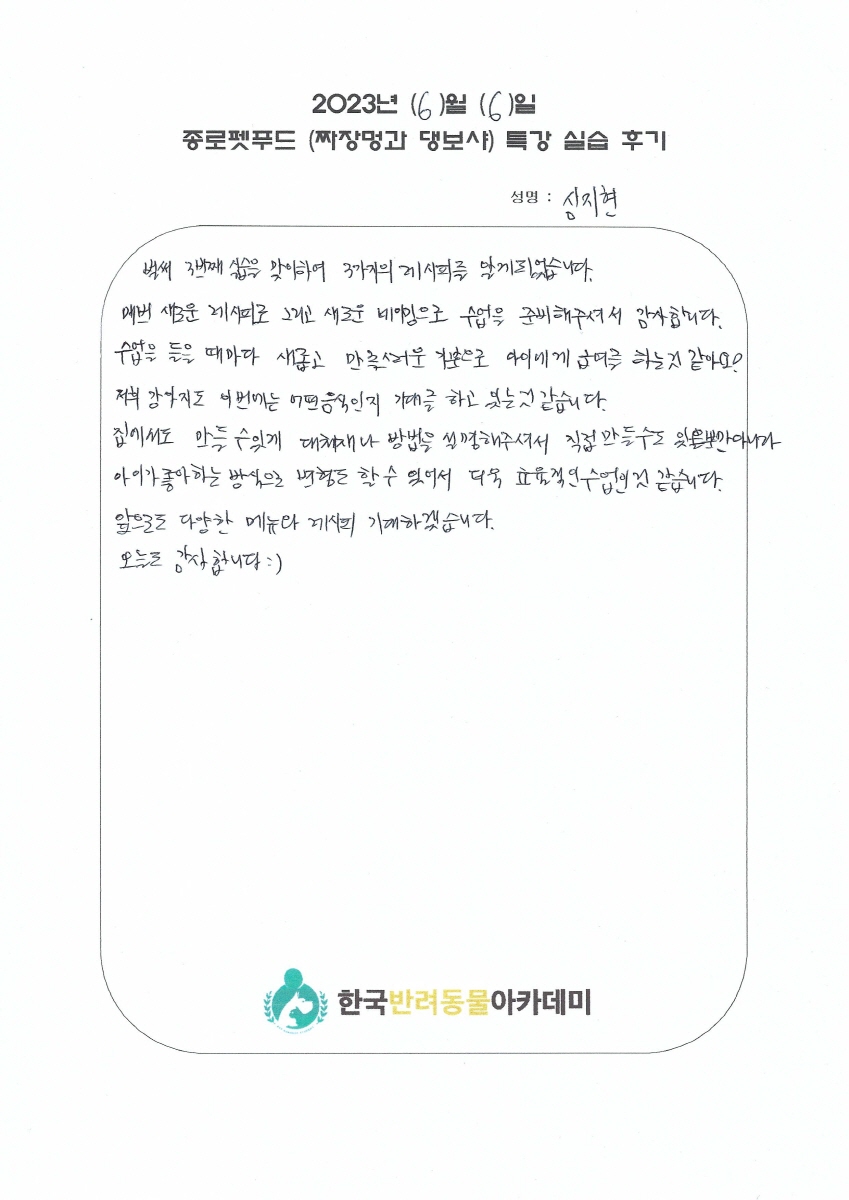 2023년 (6)월 (6)일
종로펫푸드 (짜장멍과 댕보샤) 특강 실습 후기
성명 : 심지현
벌써 3번째 실습을 맞이하여 3가지의 레시피를 알게되었습니다.
매번 새로운 레시피로 그리고 새로운 네이밍으로 수업을 준비해주셔서 감사합니다.
수업을 들을 때마다 새롭고 만족스러운 기분으로 아이에게 급여를 하는것 같아요!
저희 강아지도 이번에는 어떤음식인지 기대를 하고 있는것 같습니다.
집에서도 만들 수있게 대체재나 방법을 설명해주셔서 직접 만들수도 있을뿐만아니라
아이가 좋아하는 방식으로 변형도 할 수 있어서 더욱 효율적인 수업인것 같습니다.
앞으로도 다양한 메뉴와 레시피 기대하겠습니다.
오늘도 감사합니다 :)
한국반려동물아카데미